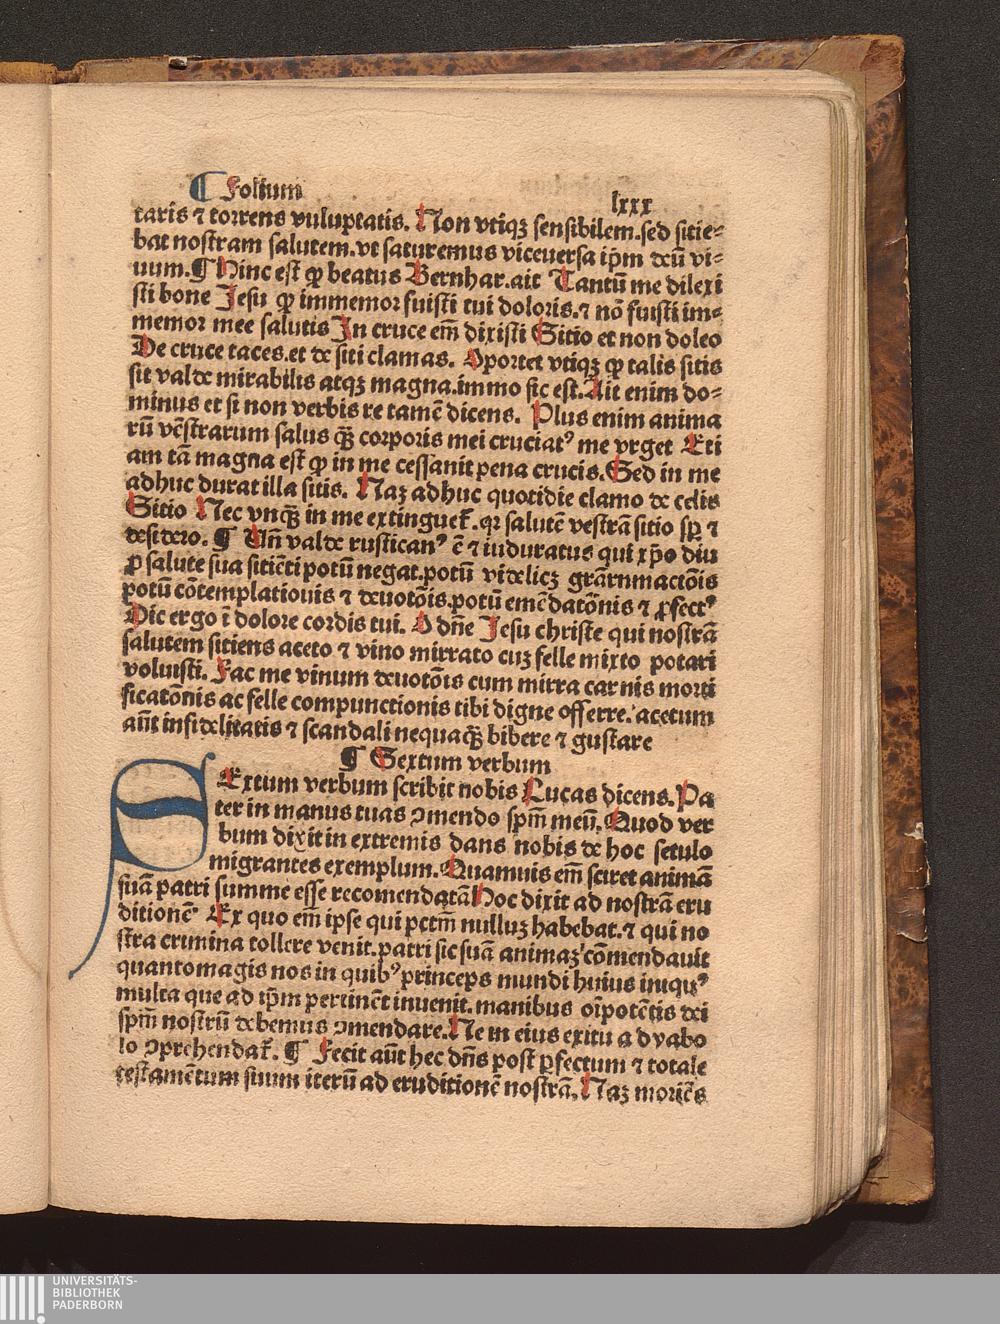 ¶ Folium lxxx
taris ⁊ torrens vuluptatis. Non vtiqꝫ sensibilem. sed sitie⸗
bat nostram salutem. vt saturemus viceuersa ip̄m deū vi⸗
uum. ¶ Hinc est ꝙ beatus Bernhar. ait Tantū me dilexi
sti bone Jesu ꝙ immemor fuisti tui doloris. ⁊ nō fuisti im⸗
memor mee salutis In cruce em̄ dixisti Sitio et non doleo
De cruce taces. et de siti clamas. Oportet vtiqꝫ ꝙ talis sitis
sit valde mirabilis atqꝫ magna. immo sic est. Ait enim do⸗
minus et si non verbis re tamē dicens. Plus enim anima
rū vēstrarum salus qꝫ̄ corporis mei cruciatꝰ me vrget Eti
am tā magna est ꝙ in me cessanit pena crucis. Sed in me
adhuc durat illa sitis. Naꝫ adhuc quotidie clamo de celis
Sitio Nec vnqꝫ̄ in me extinguet̄. qꝛ salutē vestrā sitio sꝑ ⁊
desidero. ¶ Vn̄ valde rusticanꝰ ē ⁊ iuduratus qui xp̄o diu
ꝓ salute sua sitiēti potū negat. potū videlicꝫ grārnmactōis
potū cōtemplatiouis ⁊ deuotōis. potū emēdatōnis ⁊ ꝑfectꝰ
Dic ergo ī dolore cordis tui. O dn̄e Jesu christe qui nostrā
salutem sitiens aceto ⁊ vino mirrato cuꝫ felle mixto potari
voluisti. Fac me vinum deuotōis cum mirra carnis morti
ficatōnis ac felle compunctionis tibi digne offerre. acetum
aūt infidelitatis ⁊ scandali nequaqꝫ̄ bibere ⁊ gustare
¶ Sextum verbum
SExtum verbum scribit nobis Lucas dicens. Pa
ter in manus tuas ꝯmendo spm̄ meū. Quod ver
bum dixit in extremis dans nobis de hoc seculo
migrantes exemplum. Quamuis em̄ sciret animā
suā patri summe esse recomendatā Hoc dixit ad nostrā eru
ditionē Ex quo em̄ ipse qui pctm̄ nulluꝫ habebat. ⁊ qui no
stra crimina tollere venit. patri sic suā animaꝫ cōmendauit
quantomagis nos in quibꝰ princeps mundi huius iniquꝰ
multa que ad ip̄m pertinēt inuenit. manibus oīpotētis dei
spm̄ nostrū debemus ꝯmendare. Ne in eius exitu a dyabo
lo ꝯprehendat̄. ¶ Fecit aūt hec dn̄s post ꝑfectum ⁊ totale
testamētum suum iterū ad eruditionē nostrā. Naꝫ moriēs
UNIVERSITÄTS-
BIBLIOTHEK
PADERBORN